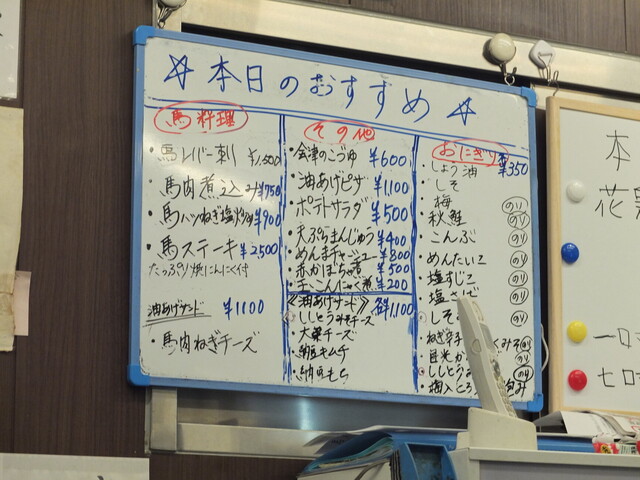 ☆本日のおすすめ☆
馬料理
・馬レバー刺し ¥1,500
・馬肉煮込み ¥750
・馬ハツねぎ塩炒め ¥900
・馬ステーキ ¥2,500
たっぷり焼にんにく付
油あげサンド ¥1100
・馬肉ねぎチーズ
その他
・会津のこづゆ ¥600
・油あげピザ ¥1,100
・ポテトサラダ ¥500
・天ぷらまんじゅう ¥400
・めんまチャーシュー ¥800
・赤かぼちゃ煮 ¥500
・玉こんにゃく煮 ¥200
《油あげサンド》 各¥1100
・ししとうみそチーズ
・大葉チーズ
・納豆キムチ
・納豆もち
おにぎり ¥350
・しょう油
・しそ
・梅 のり
・秋鮭 のり
・こんぶ のり
・めんたいこ のり
・塩すじこ のり
・塩さば のり
・しそ のり
・ねぎ辛子 くみそ のり
・目光か のり
・ししとう のり
・梅入とろ 包み
本
花
一口
七口